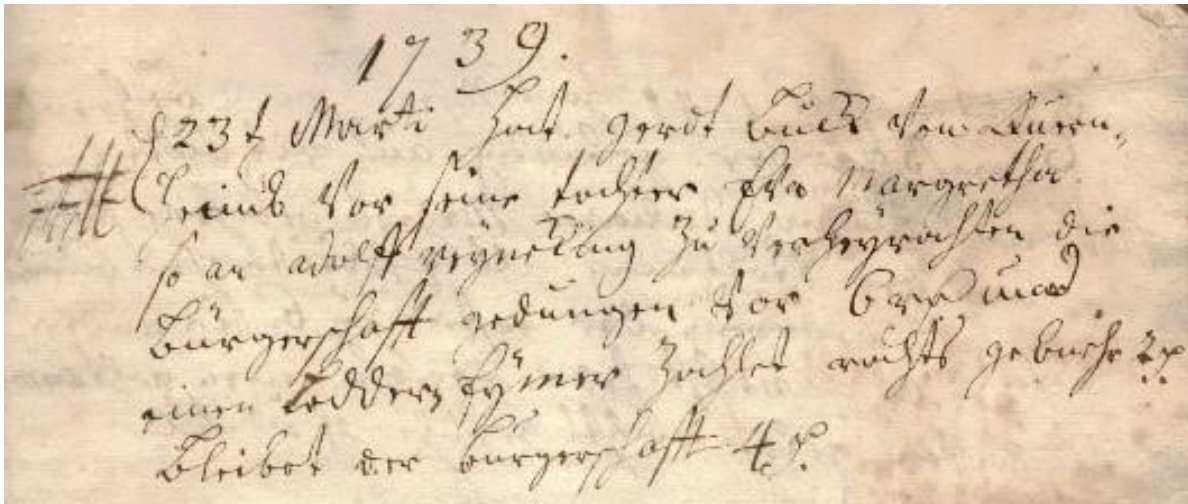 1739.
d 23t Marti hat gerdt Buck vom Quern,
heimb vor seine tochter Eva Margretha
so an adolff reyneking zu verheyrahten die
bürgerschaft gedungen vor 6 und
einen Leddern Eymer zahlet rahts gebuehr 2
bleibet der bürgerschaft 4